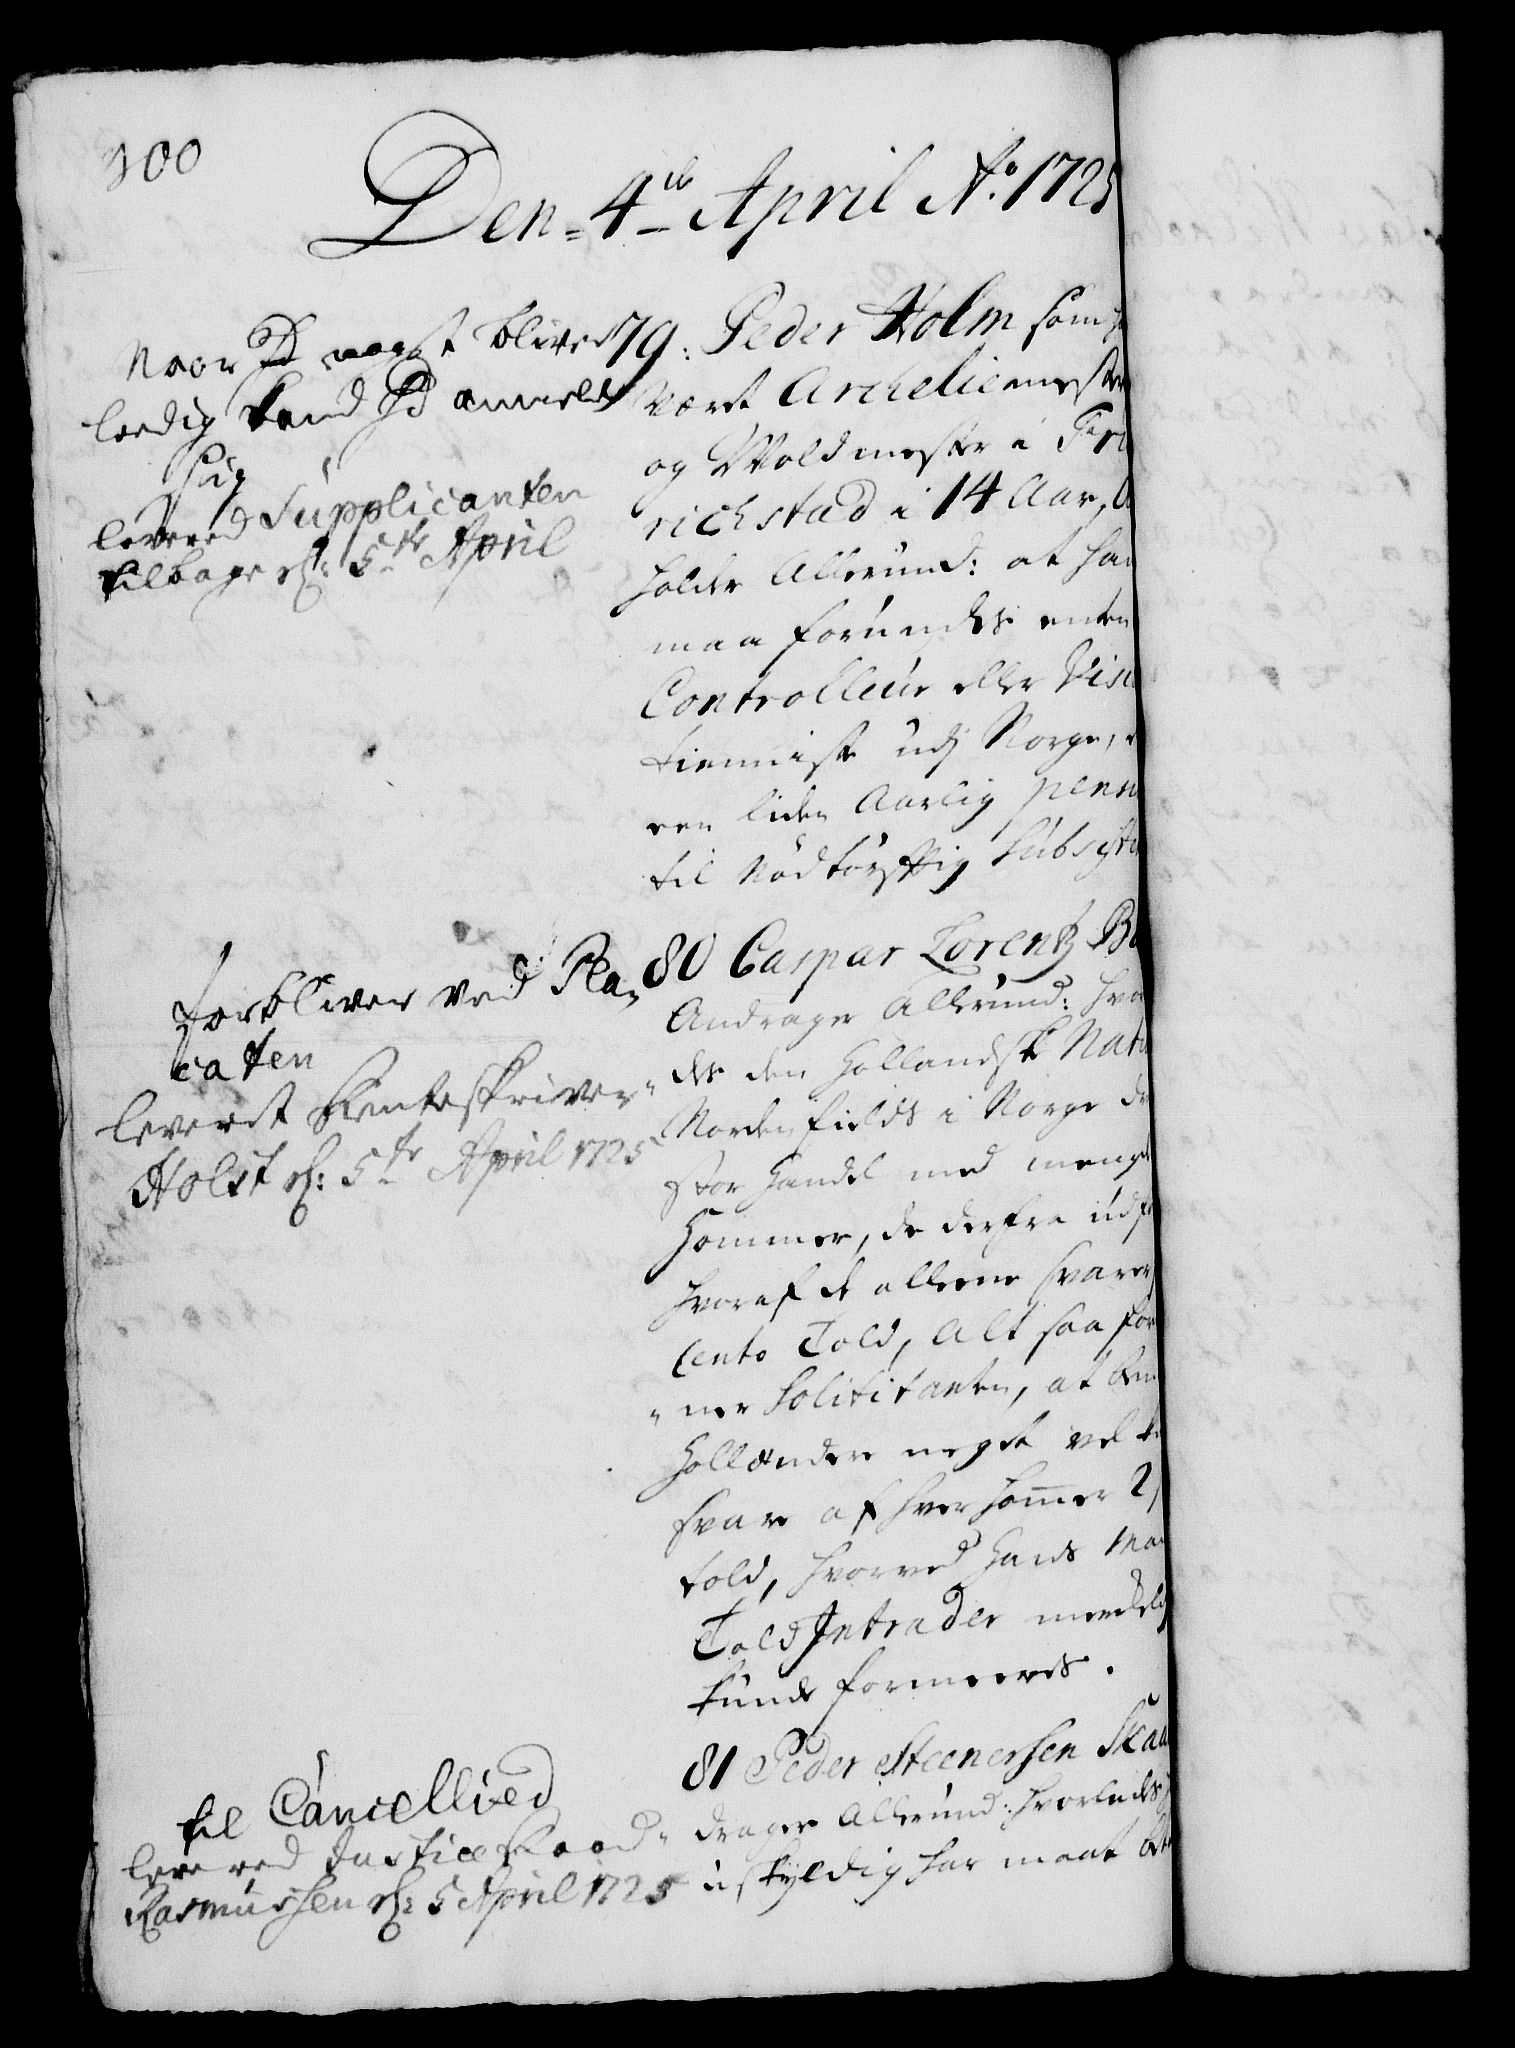 300
Den 4de April Ao. 1725
Naar Et noget bliver
leedig kand Ed anmelde
sig
levered Supplicanten
tilbage d: 5te April
79: Peder Holm som
været Archeliemester
og Woldmester i Fri
richstad i 14 Aar,
holder Allerund: at han
maa forundes enten
Controlleur eller Visi
tienniste udj Norge,
een liden Aarlig pens
til Nødtørftig Subsiste
forbliver ved Pla-
caten
leveret Renteskriver
Holst d: 5te April 1725
80 Caspar Lorentz B
Andrager Allerund: hvor
des den Hollandske Nati
Nordenfields i Norge dr
stor Handel med mengde
Hommer, de derfra udf
hvoraf de alleene svarer
Cento Told, Alt saa for
" ner Solicitanten, at bem
Hollændere noget vel k
svare af hver Hommer 2
told, hvorved Hans Ma
Told Intrader merkelig
kunde formeeres.
til Cancellied
levered Justice Raad
Rasmussen d: 5 April 1725
81 Peder Steenersen Skaa
drager Allerund: hvorledes
uskyldig har maat